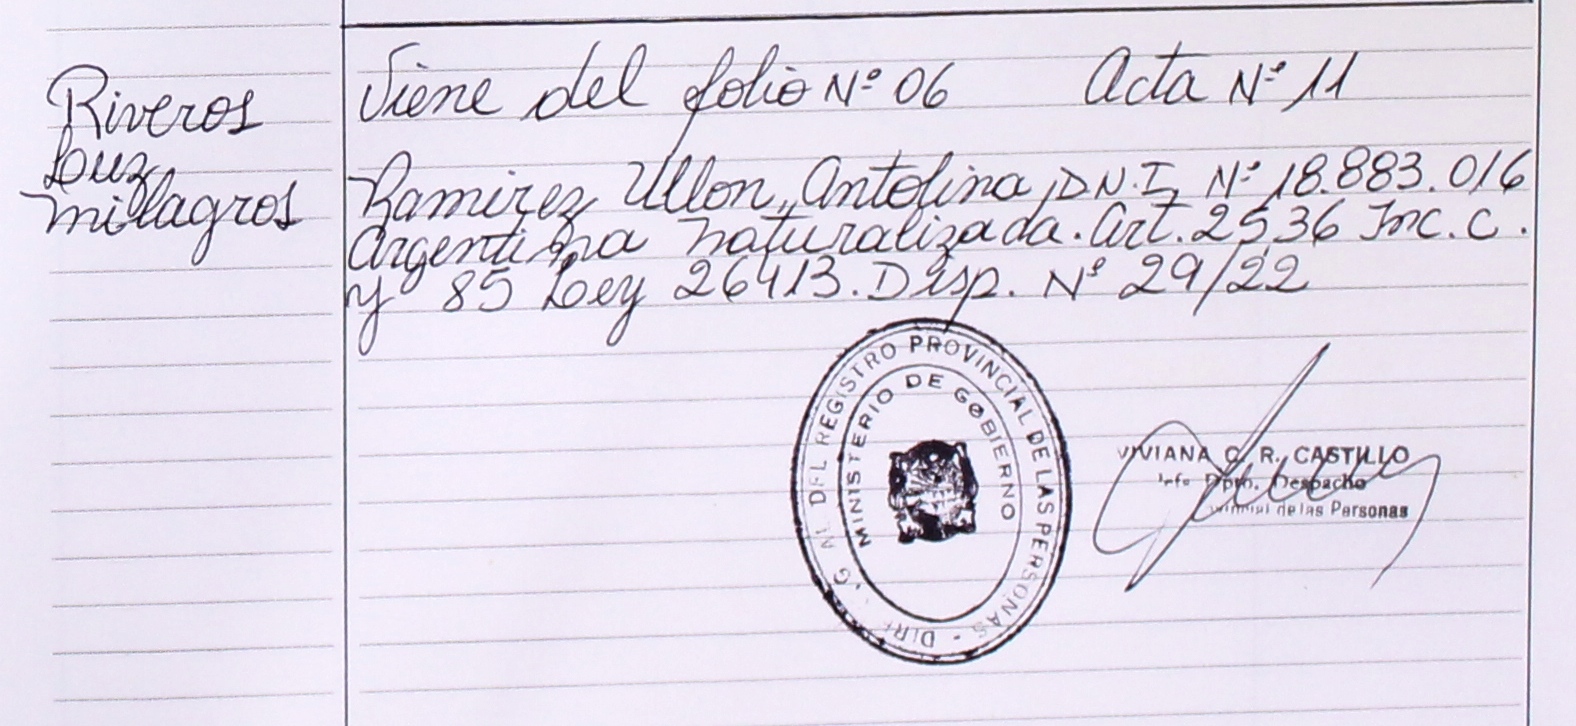 Riveros
Luz
Milagros
Viene del folio Nº 06 Acta Nº 11
Ramirez Ullon, Antolina, D.N.I. Nº 18.883.016
Argentina naturalizada. Art. 2536 Inc. C.
y 85 Ley 26413. Disp. Nº 29/22
DEL REGISTRO PROVINCIAL DE LAS PERSONAS -
MINISTERIO DE GOBIERNO
VIVIANA C. R. CASTILLO
Dpto. Despacho
de las Personas